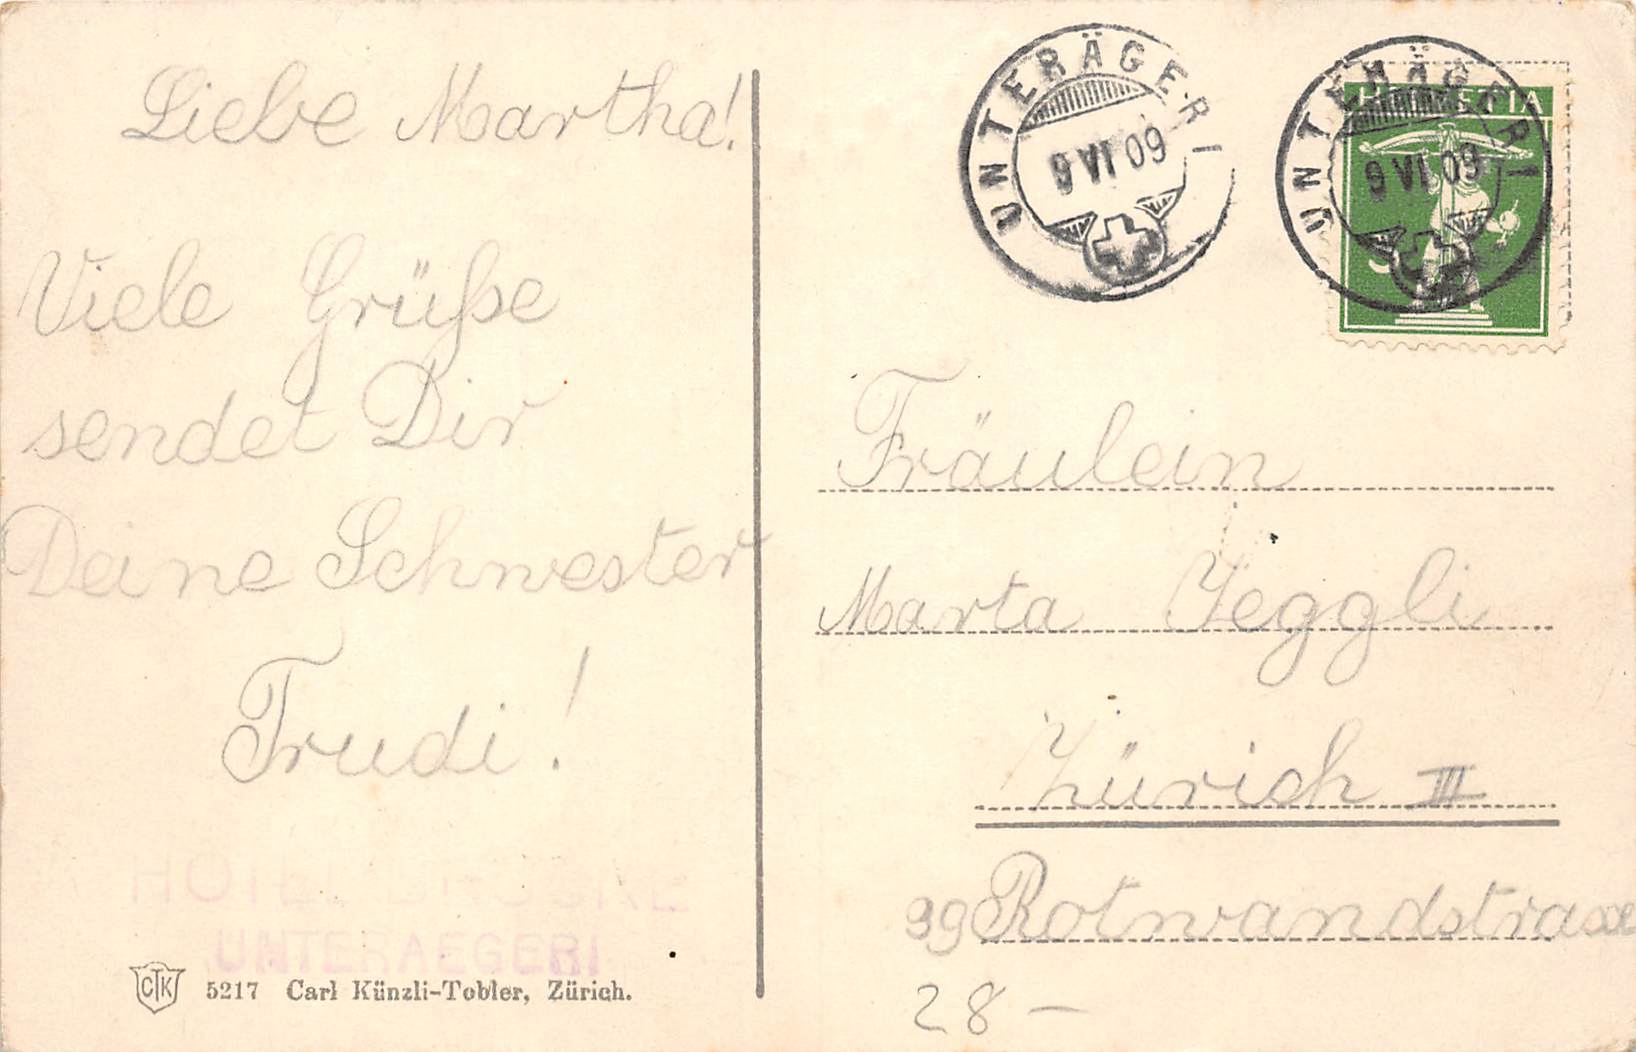 Liebe Martha!
Viele Grüße
sendet Dir
Deine Schwester
Trudi!
HOTEL
UNTERAEGERI
CTK 5217 Carl Künzli-Tobler, Zürich.
UNTERÄGERI
9 VI 09
UNTERÄGERI
9 VI 09
HELVETIA
Fräulein
Marta Jeggli
Zürich III
99 Rotwandstrasse
28 –